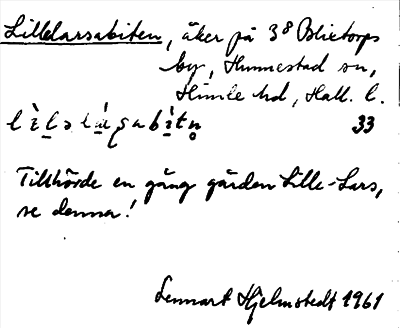 Lillelarsabiten, åker på 3⁸ Blixtorps
by, Hunnestad sn,
Himle hd, Hall. l.
33
Tillhörde en gång gården Lille-Lars,
se denna!
Lennart Hjelmstedt 1961